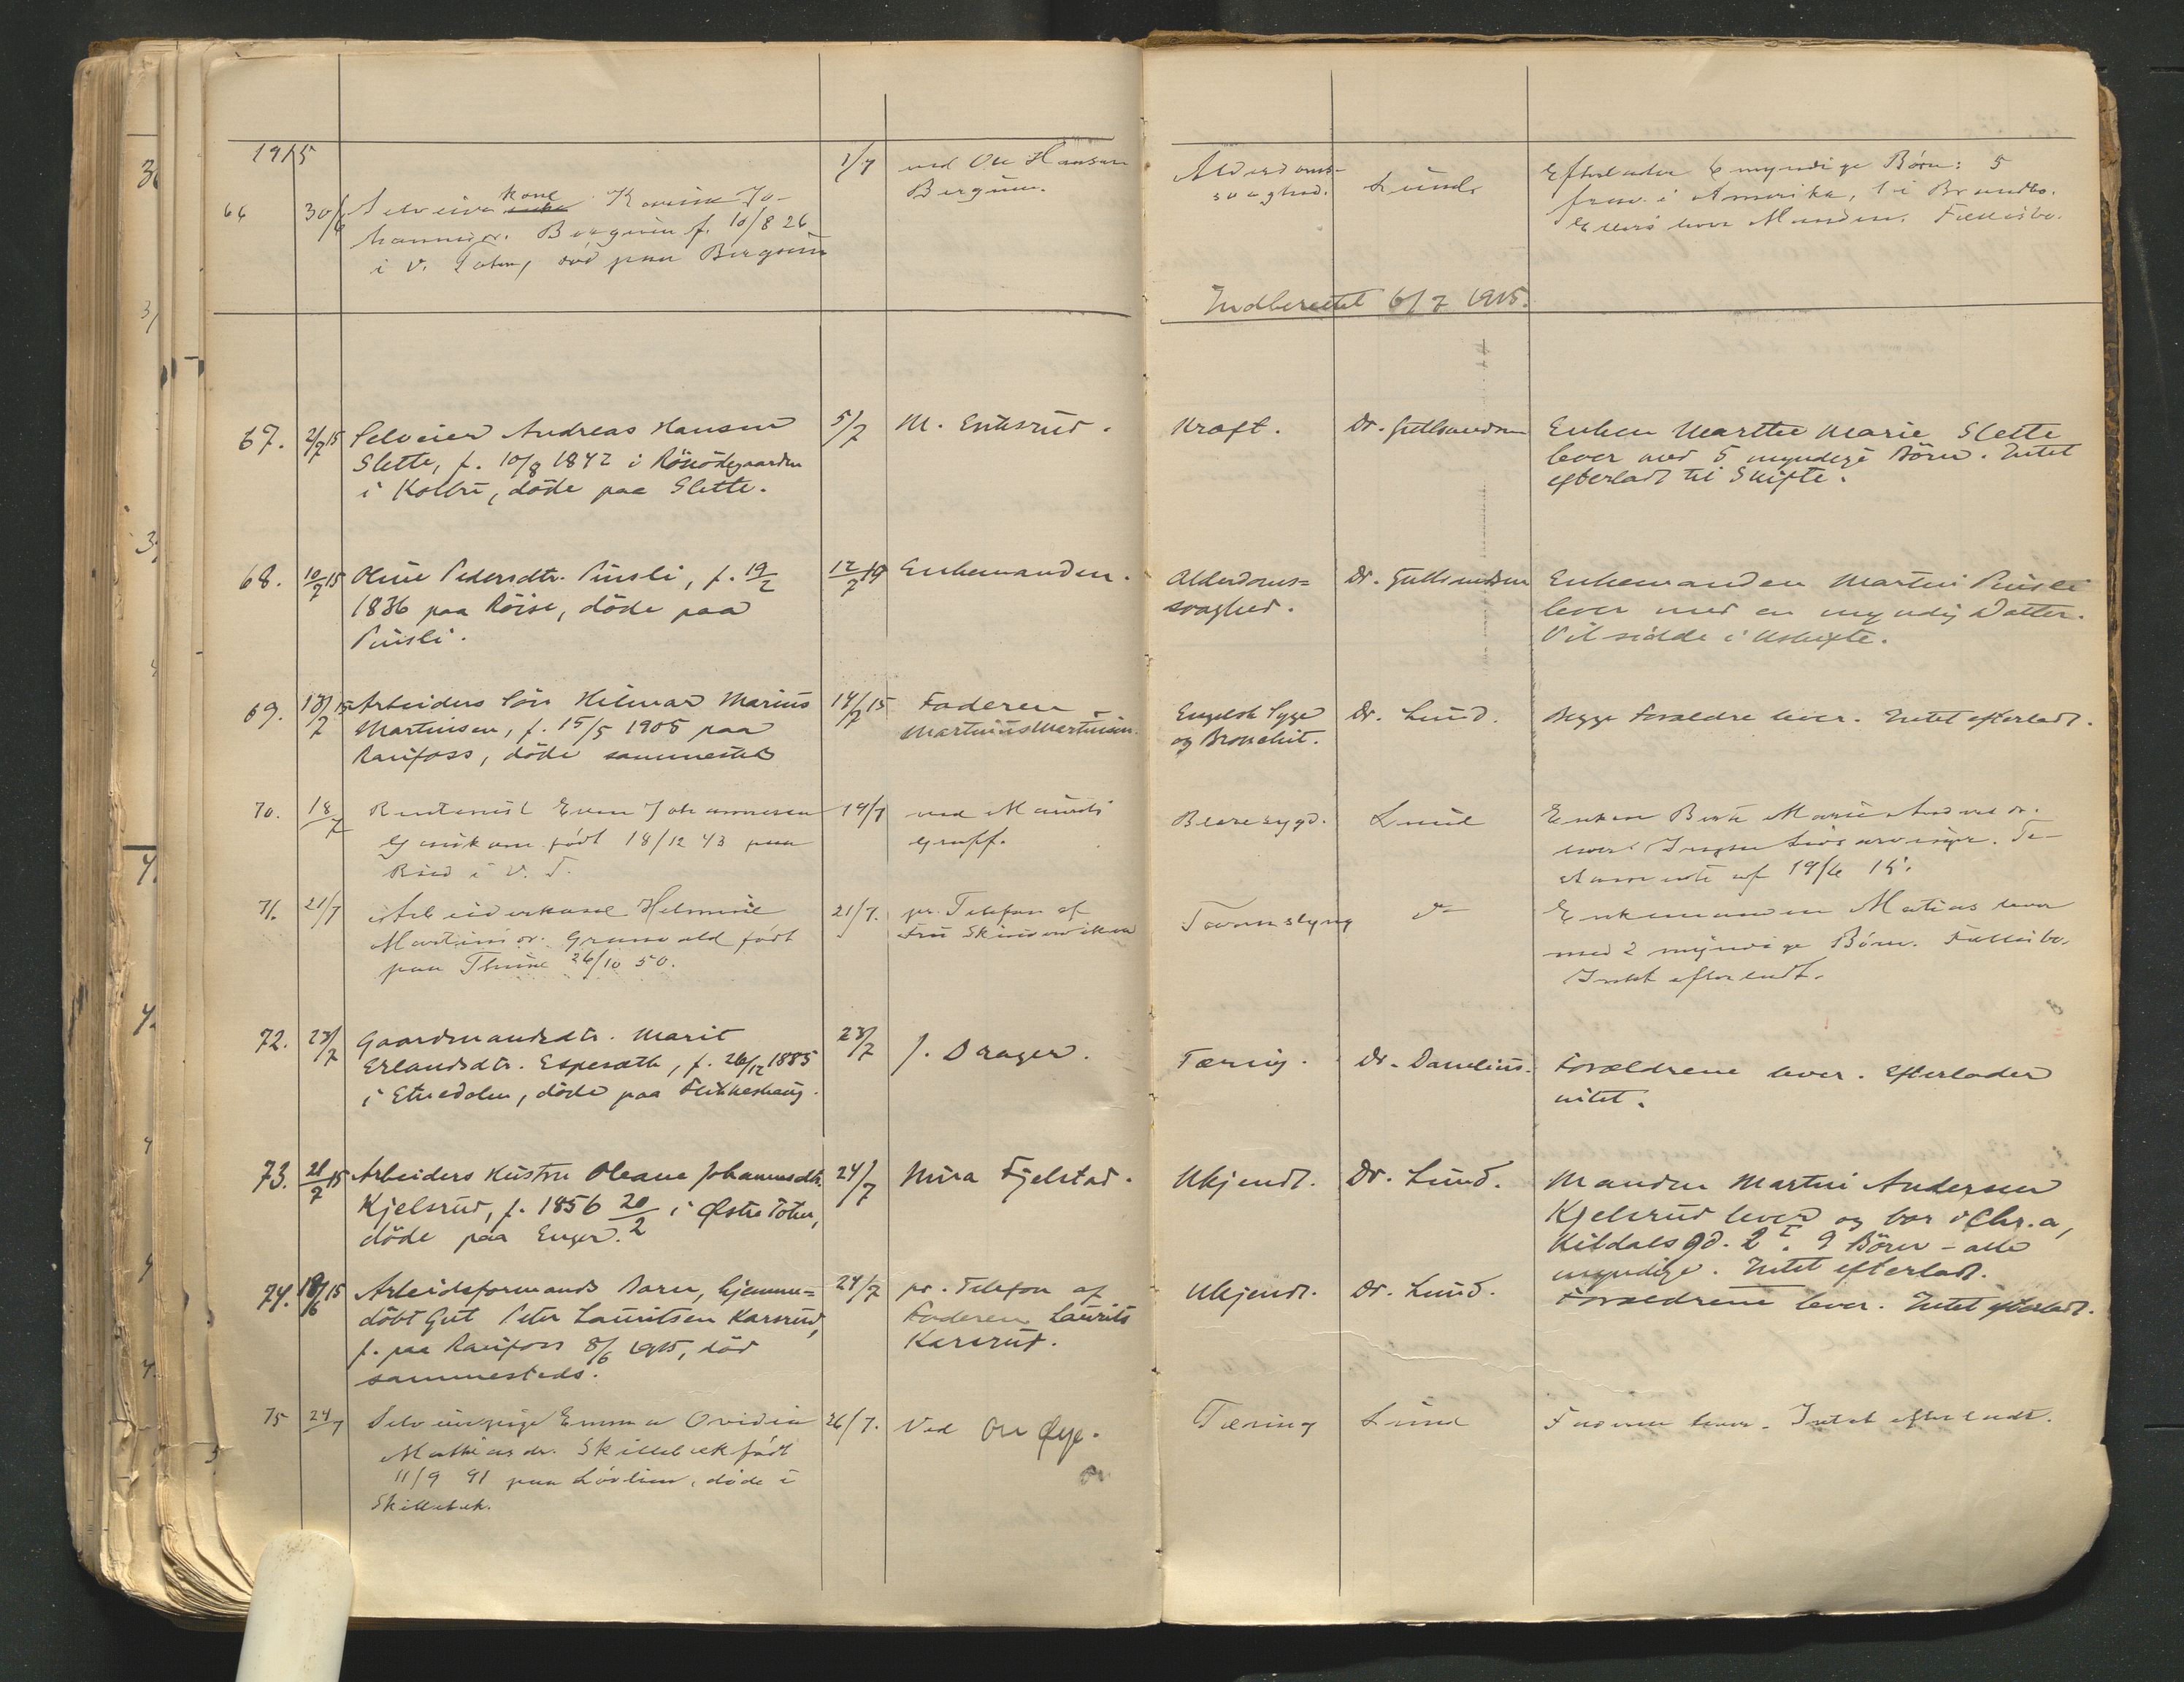 1915
66 30/6 Selveier kone Karine Jo-
hannesdr. Bergsiun f. 10/8 26
i V. Toten, død paa Bergsiun
1/7 ved Ole Hansen
Bergsiun.
Alderdoms-
svaghed. Lund
Efterlader 6 myndige Børn: 5
i Amerika, 1 i Brandbo.
Ellers lever Manden. Fællesbo.
Indberettet 6/7 1915.
67. 2/7 15 Selveier Andreas Hansen
Slette, f. 10/8 1842 i
i Kolbu, døde paa Slette.
5/7 M. Eriksrud.
Kræft. Dr. Gulbrandsen
Enken Marthe Marie Slette
lever med 5 myndige Børn. Intet
efterladt til Skifte.
68. 10/7 15 Oline Pedersdtr. Pinsli, f. 19/2
1836 paa Röise, döde paa
Pinsli.
12/7 Enkemanden.
Alderdoms=
svaghed. Dr. Gulbrandsen
Enkemanden Martin Pinsli
lever med en myndig Datter.
Vil sidde i Uskifte.
69. 13/7 15 Arbeiders Sön Hilmar Marius
Martinsen, f. 15/5 1905 paa
Raufoss, döde sammesteds
14/7 15 Faderen
Martinius Martinsen.
Engelsk Syge
og Bronchit. Dr. Lund.
Begge Forældre lever. Intet efterladt.
70. 18/7 Rentenist Even Johannesen
født 18/12 43 paa
i V. T.
19/7 ved Maurits
Graff.
Blæresygd. Lund
Enken Marie
lever. Ingen Livsarvinger. Te-
stamente af 19/4 15.
71. 21/7 Arbeiderkone Helmine
Martinsdr. Grunvold født
paa Thune 26/10 50.
21/7. pr. Telefon af
Fru
Tarmslyng
Enkemanden Matias lever
med 2 myndige Børn. Fællesbo.
Intet efterladt.
72. 23/7 Gaardmandsdtr. Marit
Erlandsdtr. Espesæth, f. 26/12 1885
i Etnedalen, döde paa
23/7 J. Drager.
Tæring. Dr. Danelius.
Forældrene lever. Efterlader
intet.
73. 21/7 15 Arbeiders Hustru Oleane Johannesdtr.
Kjelsrud, f. 1856 20/2 i Østre Toten,
döde paa Enger.
24/7 Mina Fjelstad.
Ukjendt. Dr. Lund.
Manden Martin Andersen
Kjelsrud lever og bor i Chr.a,
Kildals gd. 2 I. 9 Börn - alle
myndige. Intet efterladt.
74. 18/6 15 Arbeidsformands Barn, hjemme=
döbt Gut Peter Lauritsen Karsrud,
f. paa Raufoss 8/6 1915, död
sammesteds.
24/7 pr. Telefon af
Faderen Laurits
Karsrud.
Ukjendt. Dr. Lund.
Forældrene lever. Intet efterladt.
75 24/7 Selveierpige Emma Ovidia
Mathiasdr. Skillebæk født
11/9 91 paa Løvlien, døde i
Skillebæk.
26/7. Ved Ole Øye.
Tæring Lund
Faderen lever. Intet efterladt.